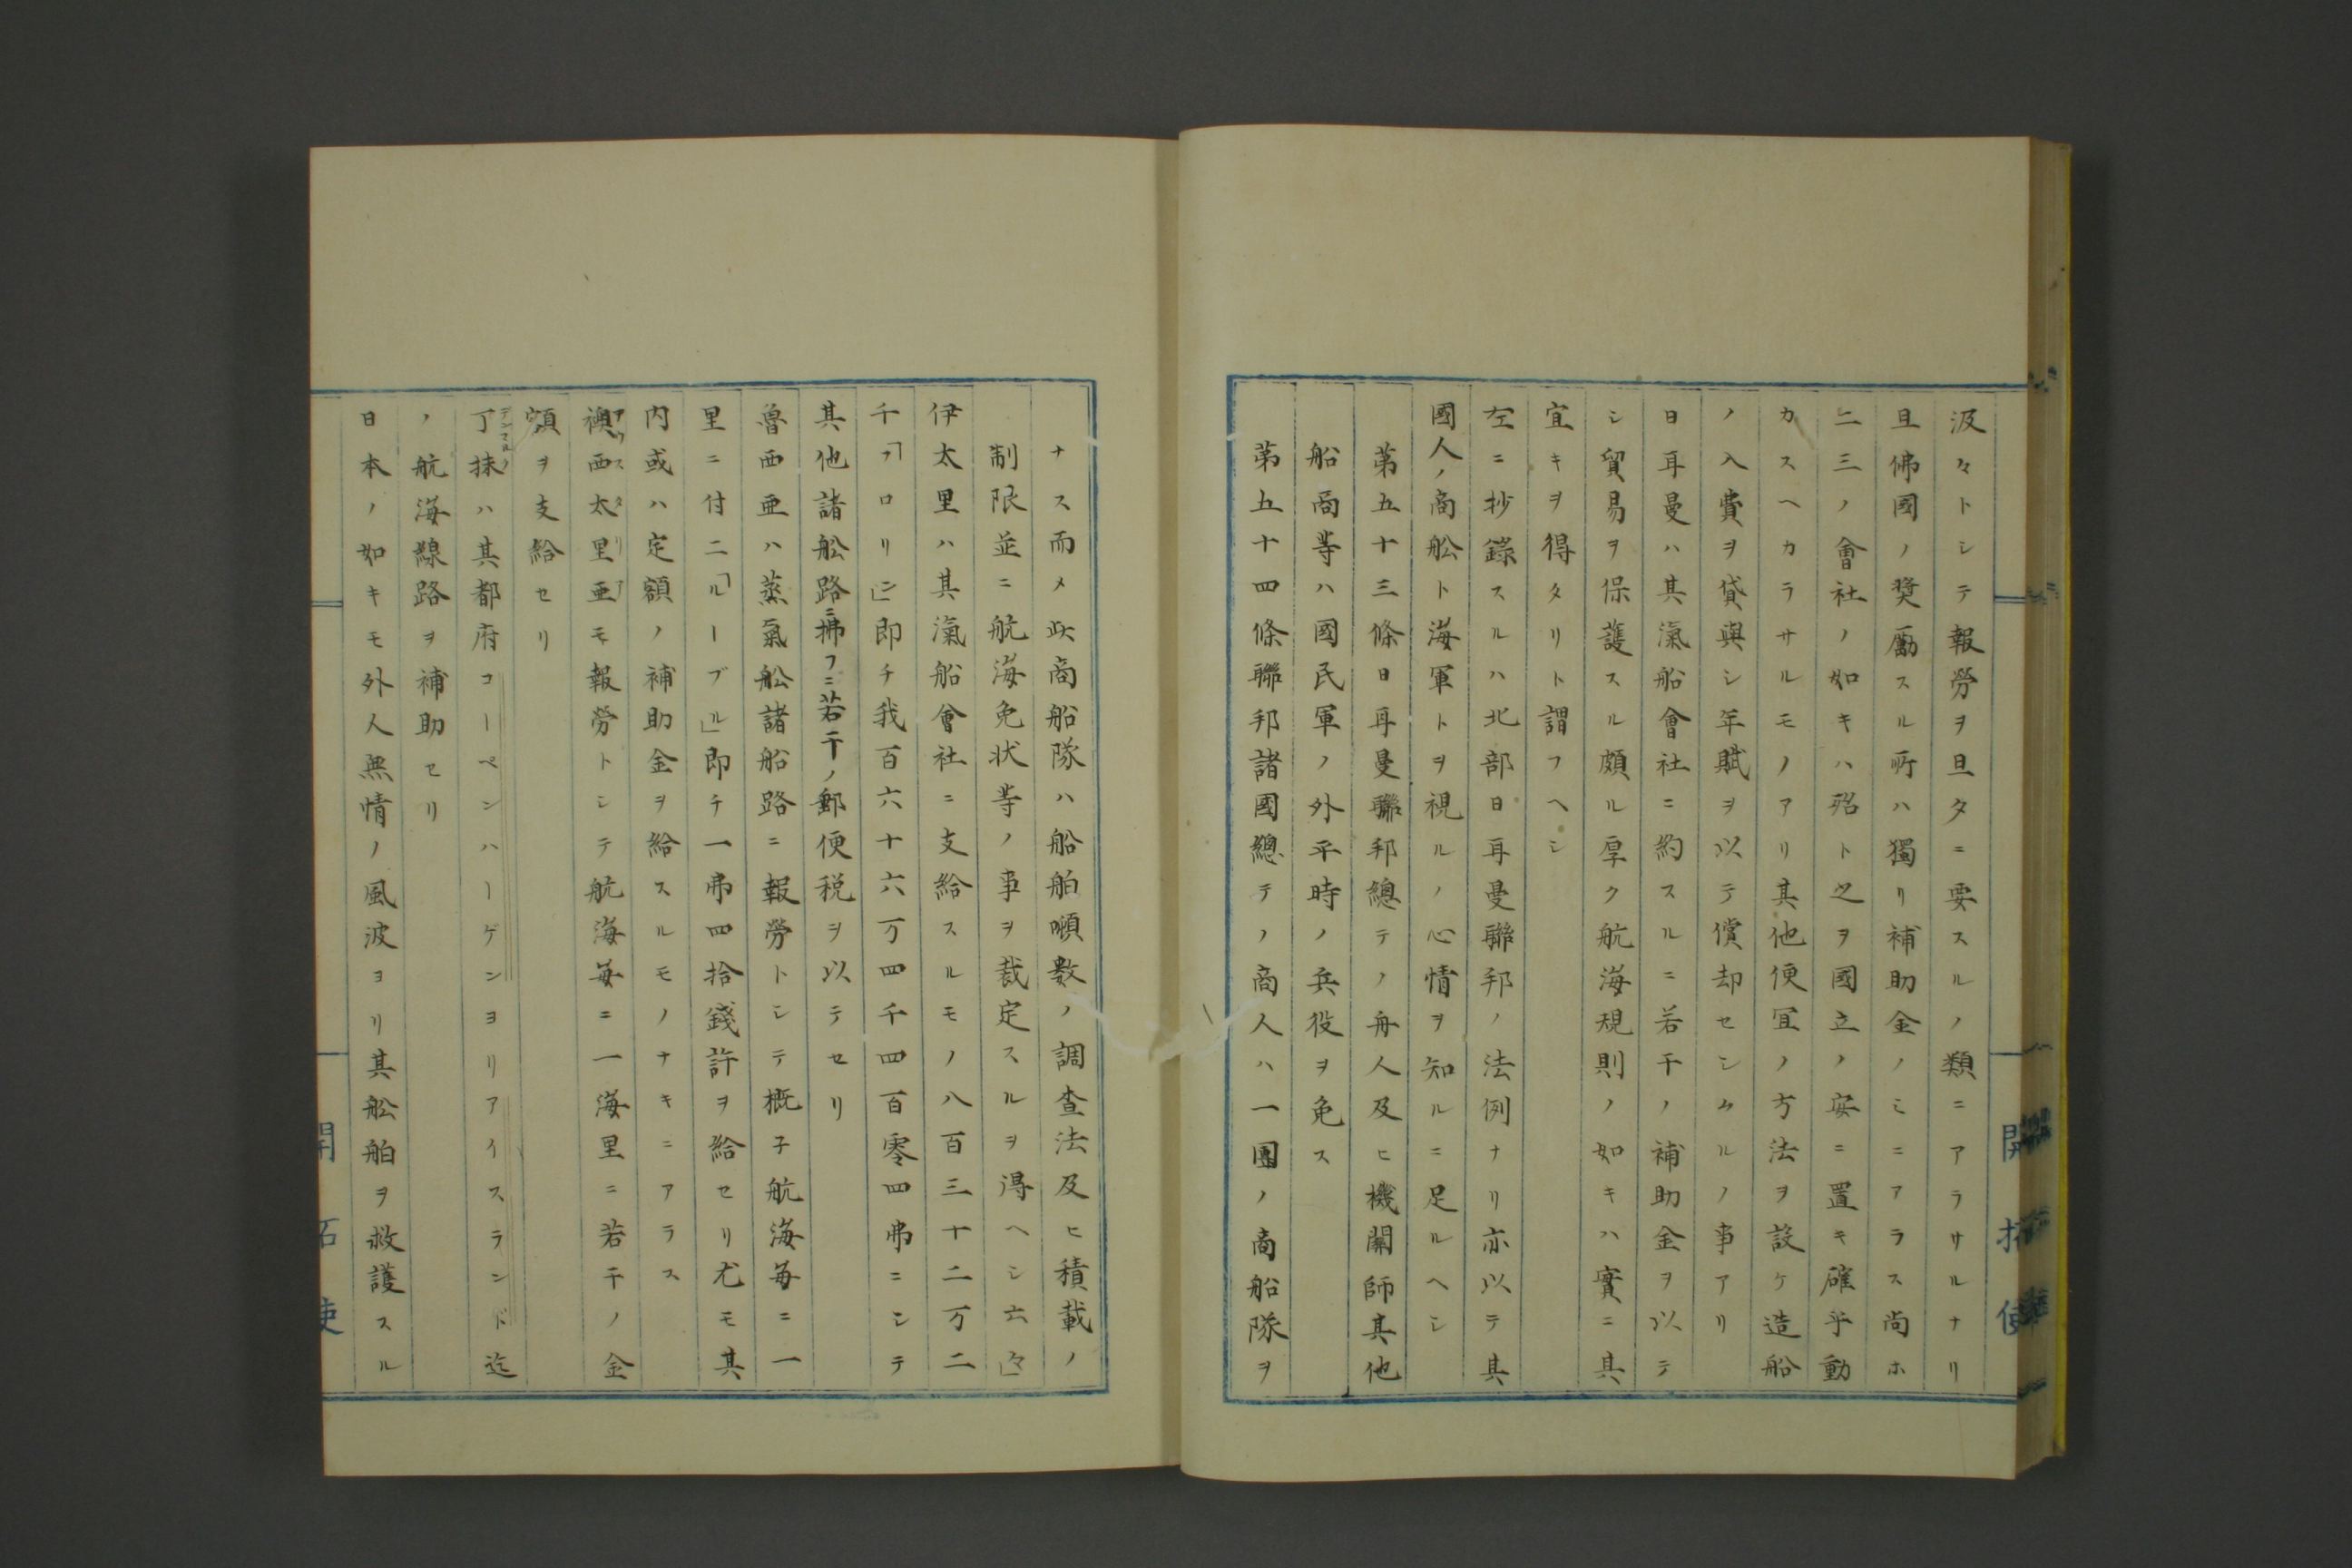 汲々トシテ報勞ヲ旦タニ要スルノ類ニアラサルナリ
且佛國ノ奬勵スル所ハ獨リ補助金ノミニアラス尚ホ
二三ノ會社ノ如キハ殆ト之ヲ國立ノ安ニ置キ確乎動
カスヘカラサルモノアリ其他便宜ノ方法ヲ設ケ造船
ノ入費ヲ貸與シ年賦ヲ以テ償却セシムルノ事アリ
日耳曼ハ其滊船會社ニ約スルニ若干ノ補助金ヲ以テ
シ貿易ヲ保護スル頗ル厚ク航海規則ノ如キハ實ニ其
宜キヲ得タリト謂フヘシ
左ニ抄錄スルハ北部日耳曼聯邦ノ法例ナリ亦以テ其
國人ノ商舩ト海軍トヲ視ルノ心情ヲ知ルニ足ルヘシ
第五十三條日耳曼聯邦總テノ舟人及ヒ機關師其他
船商等ハ國民軍ノ外平時ノ兵役ヲ免ス
第五十四條聯邦諸國總テノ商人ハ一團ノ商船隊ヲ
開拓使
ナス而メ此商船隊ハ船舶噸數ノ調查法及ヒ積載ノ
制限並ニ航海免状等ノ事ヲ裁定スルヲ得ヘシ云々」
伊太里ハ其滊船會社ニ支給スルモノ八百三十二万二
千「フロリン」即チ我百六十六万四千四百零四弗ニシテ
其他諸舩路ニ拂フニ若干ノ郵便税ヲ以テセリ
魯西亜ハ蒸氣舩諸船路ニ報勞トシテ概子航海毎ニ一
里ニ付二「ルーブル」即チ一弗四拾錢許ヲ給セリ尤モ其
内或ハ定額ノ補助金ヲ給スルモノナキニアラス
襖西太里亜モ報勞トシテ航海每ニ一海里ニ若干ノ金
アウスタリア
額ヲ支給セリ
丁抹ハ其都府コーペンハーゲンヨリアイスランド迄
デンマルク
ノ航海線路ヲ補助セリ
日本ノ如キモ外人無情ノ風波ヨリ其舩舶ヲ救護スル
開拓使